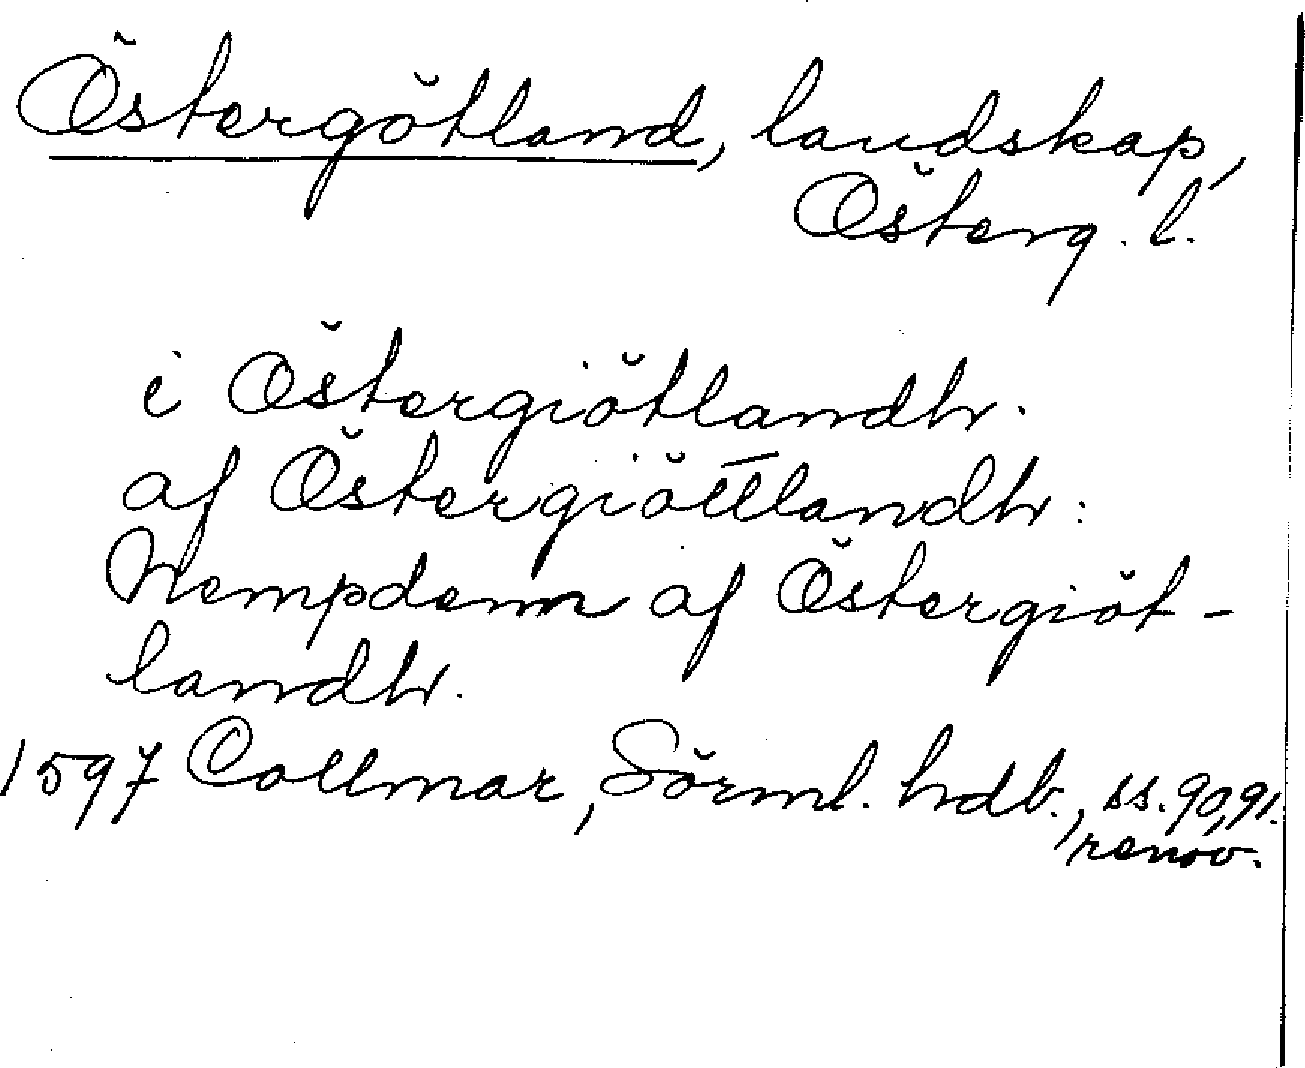 Östergötland, landskap,
Österg. l.
i Östergiötlandh.
af Östergiöttlandh:
Nempdenn af Östergiöt-
landh.
1597 Collmar, Sörml. hdb., ss. 90, 91.
renov.